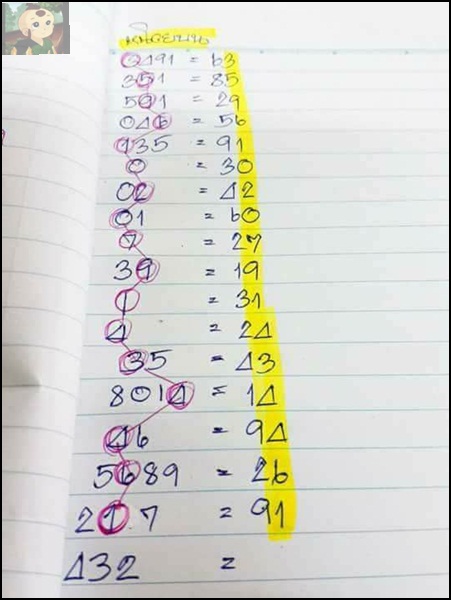 เดือยบน
0491 = 63
351 = 85
591 = 29
046 = 56
135 = 91
0 = 30
02 = 42
01 = 60
7 = 27
39 = 19
1 = 31
4 = 24
35 = 43
8014 = 14
46 = 94
5689 = 26
217 = 91
432 =